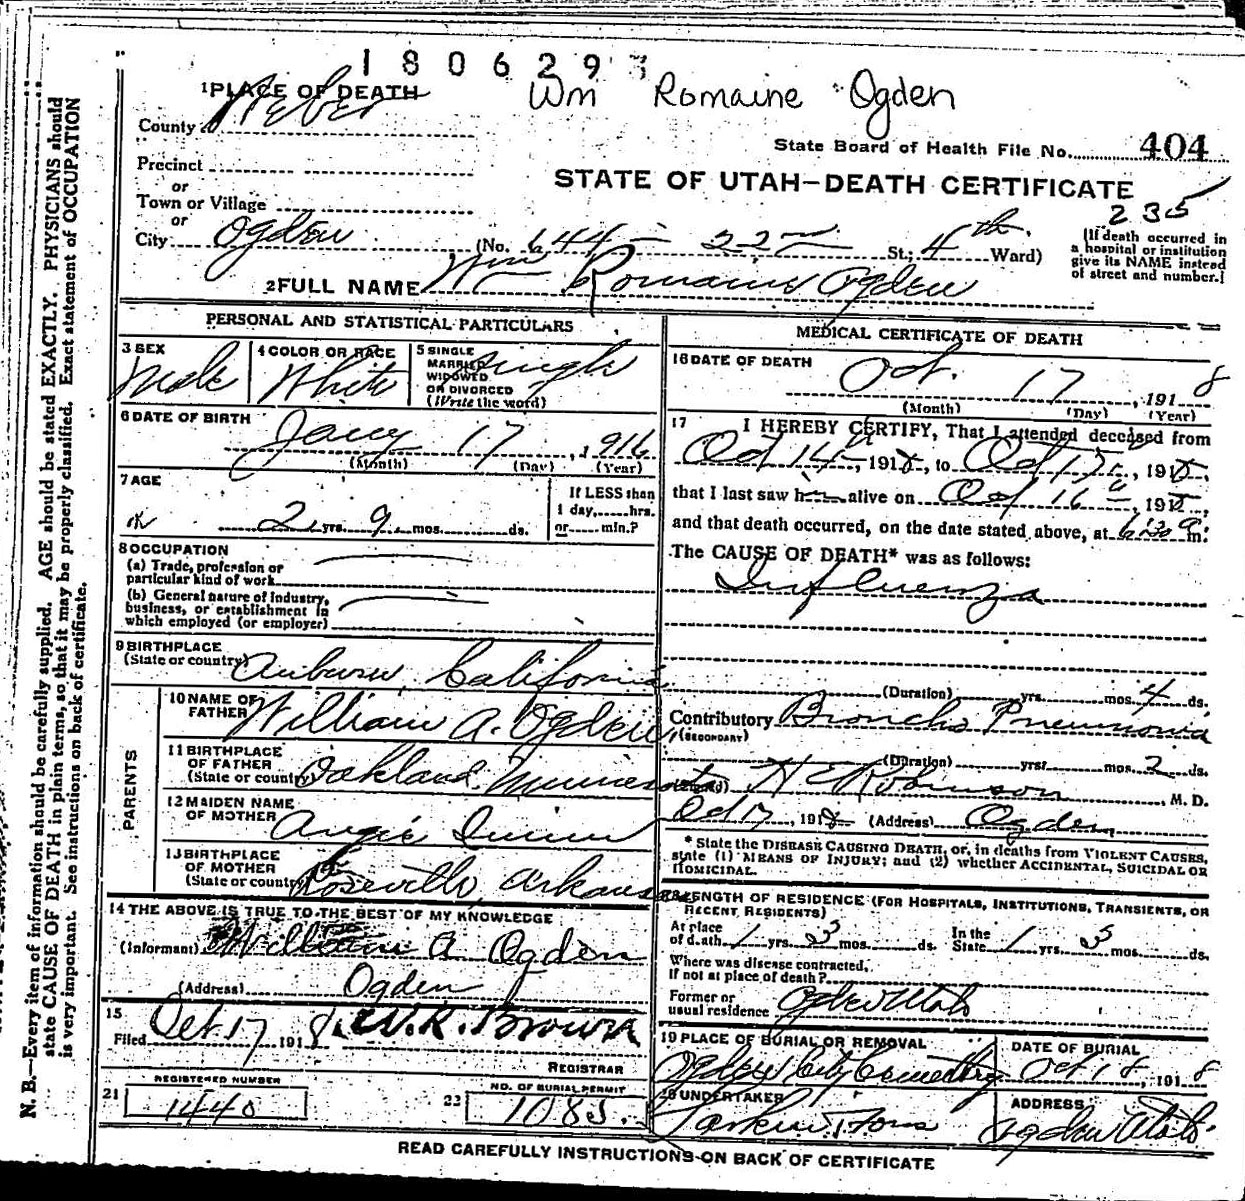 180629
1 PLACE OF DEATH
Wm Romaine Ogden
County Weber
State Board of Health File No. 404
Precinct
or
STATE OF UTAH—DEATH CERTIFICATE
Town or Village
235
or
City Ogden (No. 644 - 22nd St.; 4th Ward)
(If death occurred in a hospital or institution give its NAME instead of street and number.)
2 FULL NAME Wm Romaine Ogden
PERSONAL AND STATISTICAL PARTICULARS
3 SEX Male
4 COLOR OR RACE White
5 SINGLE MARRIED WIDOWED OR DIVORCED (Write the word) Single
6 DATE OF BIRTH Jany 17, 1916
(Month) (Day) (Year)
7 AGE
2 yrs. 9 mos. ds.
If LESS than 1 day, hrs. or min.?
8 OCCUPATION
(a) Trade, profession or particular kind of work
(b) General nature of industry, business, or establishment in which employed (or employer)
9 BIRTHPLACE (State or country) Auburn, California
PARENTS
10 NAME OF FATHER William A. Ogden
11 BIRTHPLACE OF FATHER (State or country) Oakland, Minnesota
12 MAIDEN NAME OF MOTHER Angie Quinn
13 BIRTHPLACE OF MOTHER (State or country) Roseville, Arkansas
14 THE ABOVE IS TRUE TO THE BEST OF MY KNOWLEDGE
(Informant) William A Ogden
(Address) Ogden
15
Filed Oct 17 1918. W. R. Brown
REGISTRAR
21 REGISTERED NUMBER 1440
22 NO. OF BURIAL PERMIT 1083.
MEDICAL CERTIFICATE OF DEATH
16 DATE OF DEATH Oct. 17, 1918
(Month) (Day) (Year)
17 I HEREBY CERTIFY, That I attended deceased from
Oct 14th, 1918, to Oct 17, 1918,
that I last saw him alive on Oct 16, 1918,
and that death occurred, on the date stated above, at 6:30 a m.
The CAUSE OF DEATH* was as follows:
Influenza
(Duration) yrs. mos. 4 ds.
Contributory (SECONDARY) Broncho Pneumonia
(Duration) yrs. mos. 2 ds.
(Signed) H E Robinson M. D.
Oct 17, 1918 (Address) Ogden
* State the DISEASE CAUSING DEATH, or, in deaths from VIOLENT CAUSES, state (1) MEANS OF INJURY; and (2) whether ACCIDENTAL, SUICIDAL OR HOMICIDAL.
LENGTH OF RESIDENCE (FOR HOSPITALS, INSTITUTIONS, TRANSIENTS, OR RECENT RESIDENTS)
At place of death 1 yrs. 3 mos. ds. In the State 1 yrs. 3 mos. ds.
Where was disease contracted, if not at place of death?
Former or usual residence Ogden Utah
19 PLACE OF BURIAL OR REMOVAL Ogden City Cemetery
DATE OF BURIAL Oct 18, 1918
20 UNDERTAKER Larkin & Sons
ADDRESS Ogden Utah.
READ CAREFULLY INSTRUCTIONS ON BACK OF CERTIFICATE
N. B.—Every item of information should be carefully supplied. AGE should be stated EXACTLY. PHYSICIANS should
state CAUSE OF DEATH in plain terms, so that it may be properly classified. Exact statement of OCCUPATION
is very important. See instructions on back of certificate.